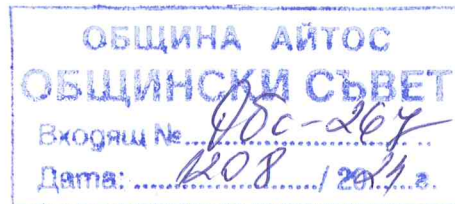 ОБЩИНА АЙТОС
ОБЩИНСКИ СЪВЕТ
Входящ № Обс-267
Дата: 1208 / 2021 г.